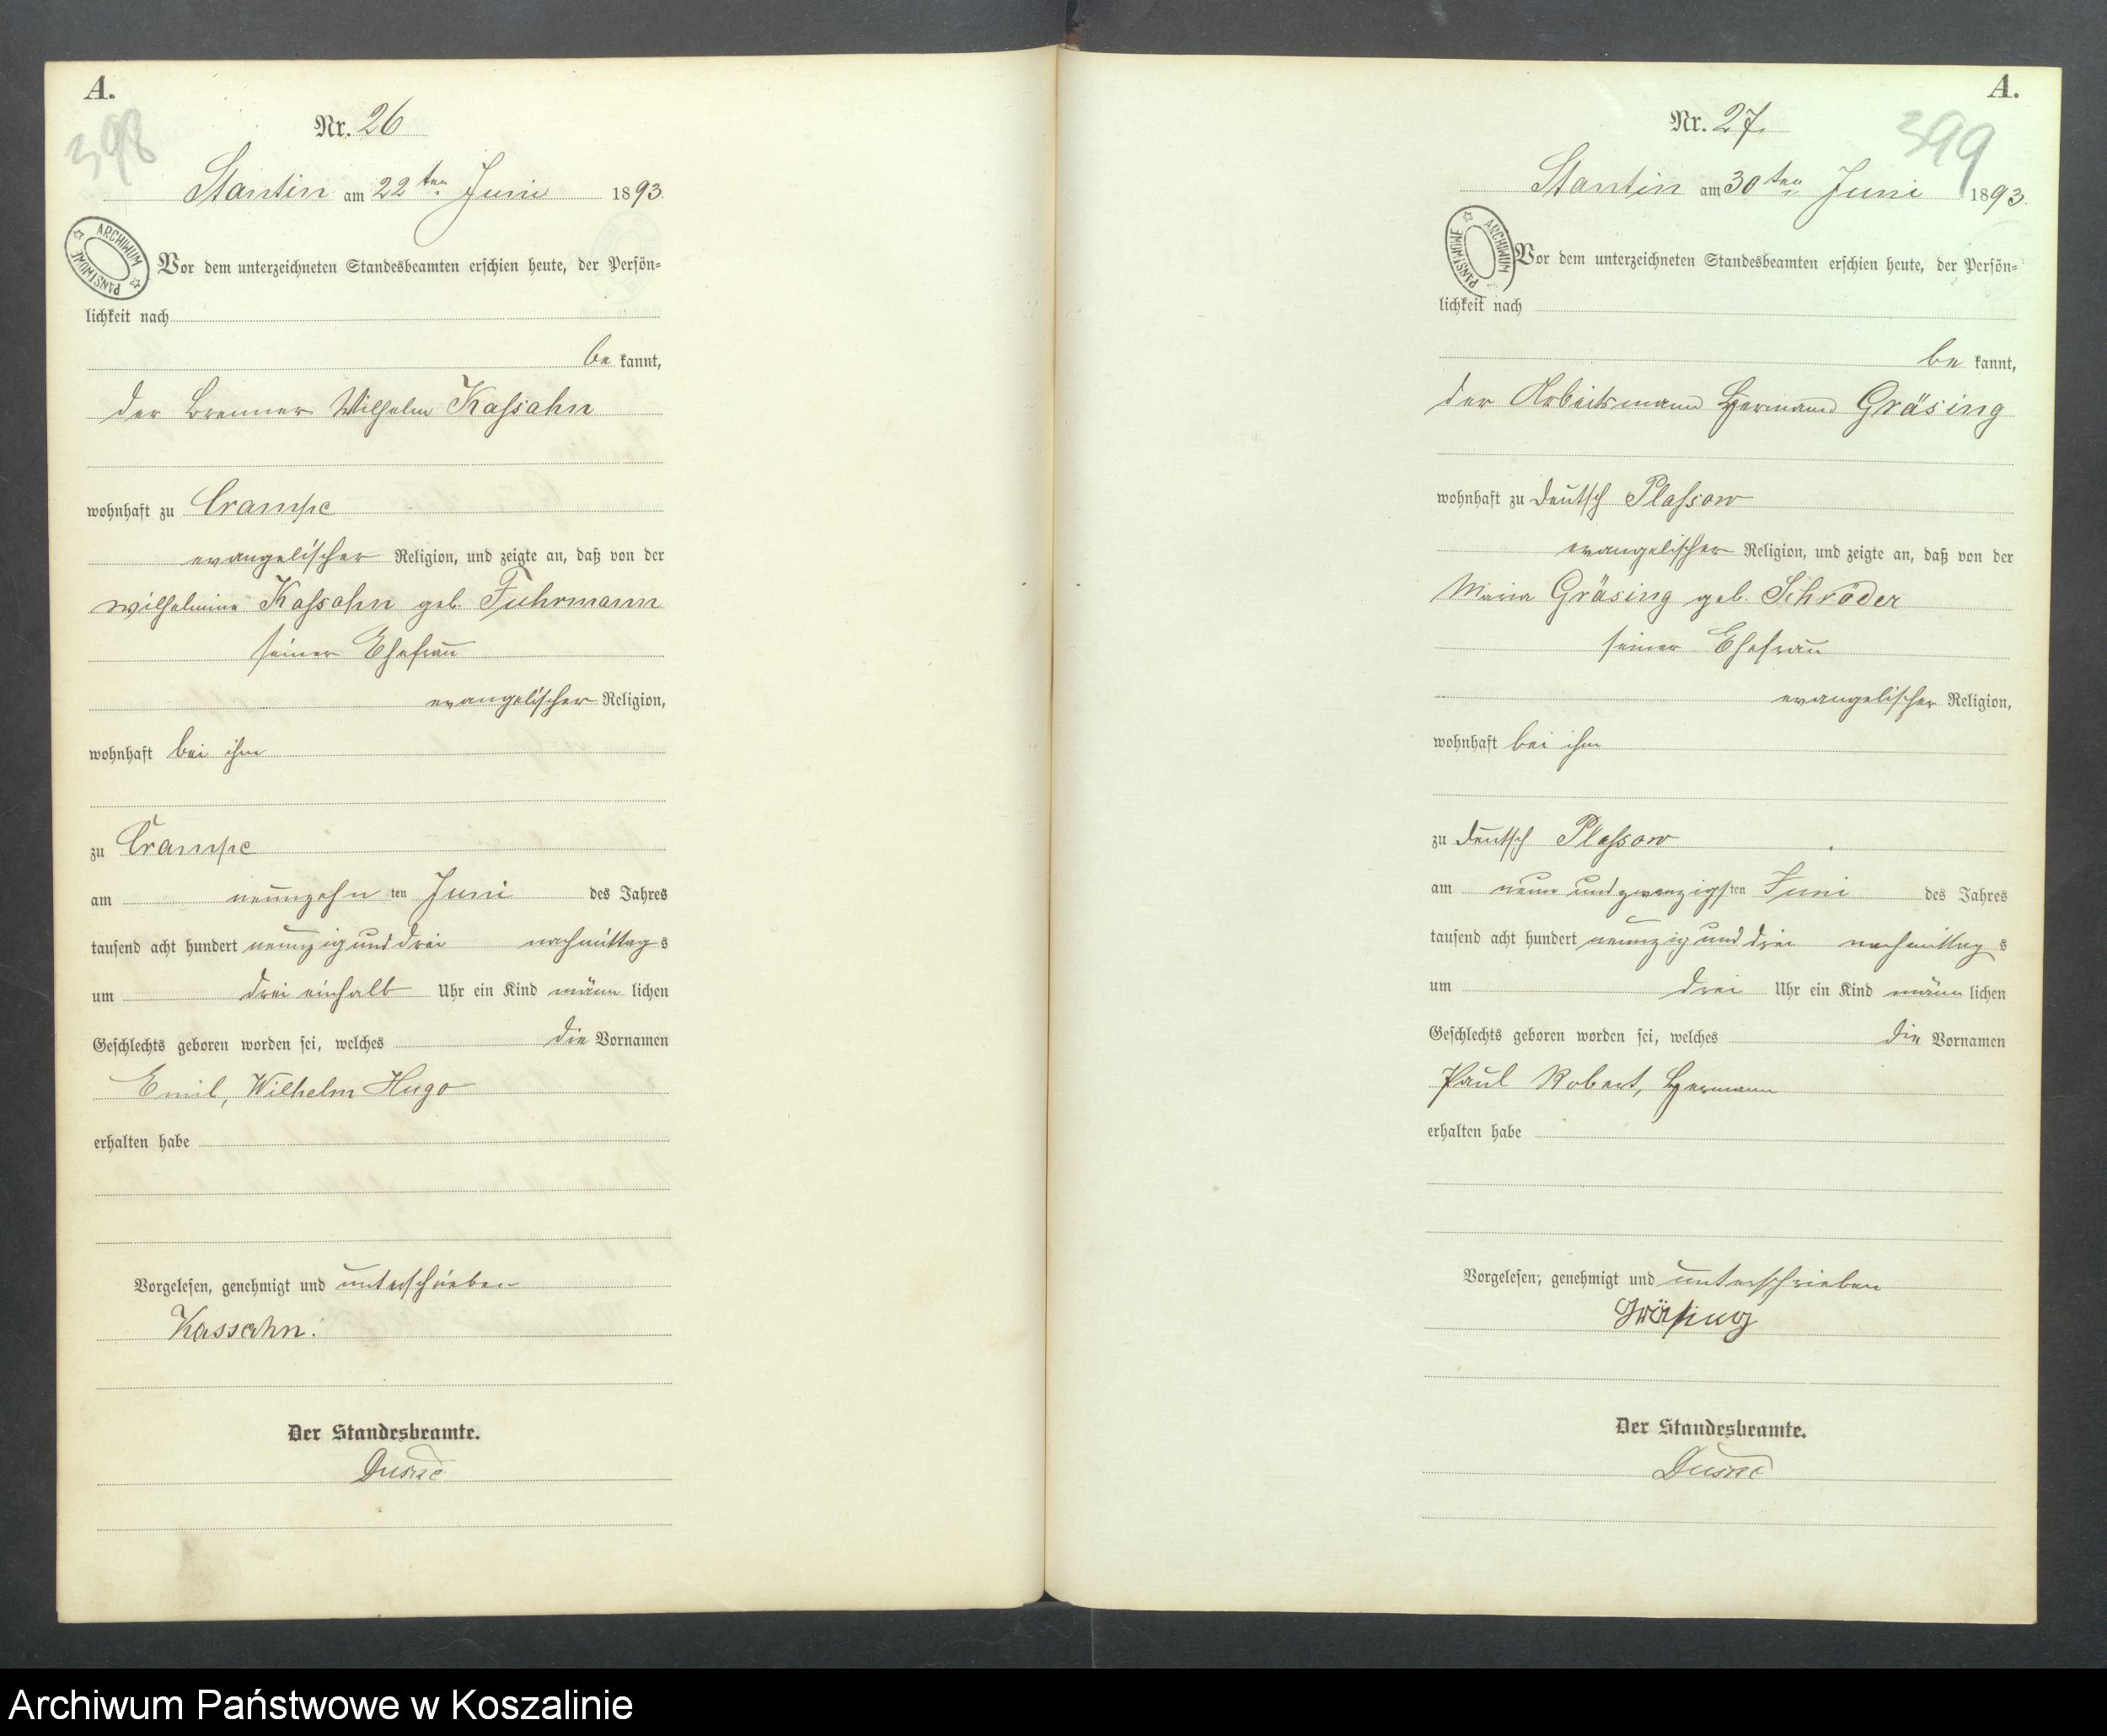 A.
398
Nr. 26
Stantin am 22ten Juni 1893.
ARCHIWUM PAŃSTWOWE
Vor dem unterzeichneten Standesbeamten erschien heute, der Persön=
lichkeit nach
be kannt,
der Brenner Wilhelm Kaßahn
wohnhaft zu Crampe
evangelischer Religion, und zeigte an, daß von der
Wilhelmine Kaßahn geb. Fuhrmann
seiner Ehefrau
evangelischer Religion,
wohnhaft bei ihm
zu Crampe
am neunzehn ten Juni des Jahres
tausend acht hundert neunzig und drei nachmittag s
um drei einhalb Uhr ein Kind männ lichen
Geschlechts geboren worden sei, welches die Vornamen
Emil, Wilhelm Hugo
erhalten habe
Vorgelesen, genehmigt und unterschrieben
Kassahn.
Der Standesbeamte.
A.
399
Nr. 27.
Stantin am 30ten Juni 1893.
ARCHIWUM PAŃSTWOWE
Vor dem unterzeichneten Standesbeamten erschien heute, der Persön=
lichkeit nach
be kannt,
der Arbeitsmann Hermann Gräsing
wohnhaft zu Deutsch Plaßow
evangelischer Religion, und zeigte an, daß von der
Maria Gräsing geb. Schröder
seiner Ehefrau
evangelischer Religion,
wohnhaft bei ihm
zu Deutsch Plaßow
am neun und zwanzigsten Juni des Jahres
tausend acht hundert neunzig und drei nachmittag s
um drei Uhr ein Kind männ lichen
Geschlechts geboren worden sei, welches die Vornamen
Paul Robert, Hermann
erhalten habe
Vorgelesen, genehmigt und unterschrieben
Gräsing
Der Standesbeamte.
Archiwum Państwowe w Koszalinie